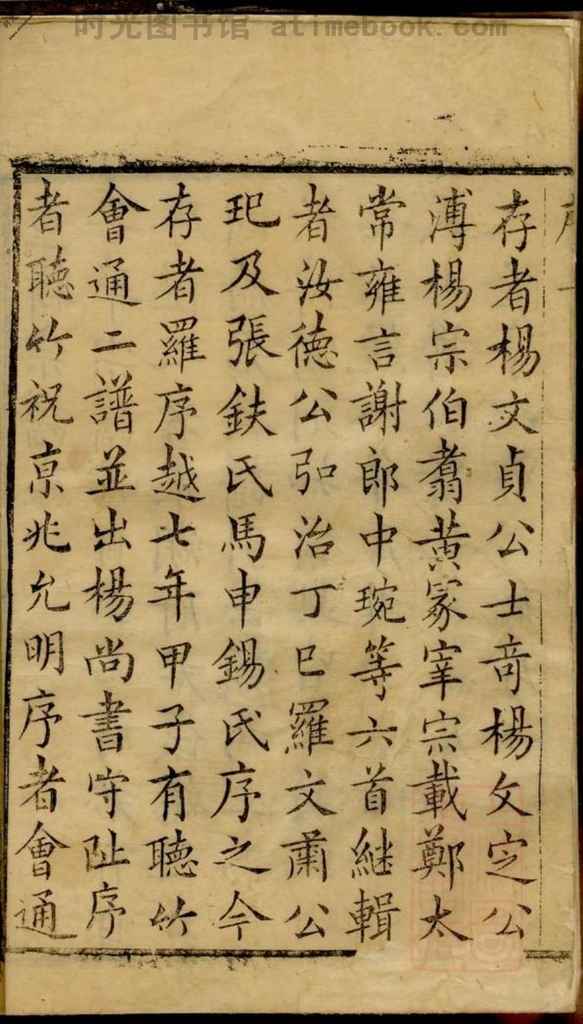 时光图书馆 atimebook.com
存者楊文貞公士奇楊文定公
溥楊宗伯翥黃冢宰宗載鄭太
常雍言謝郎中琬等六首継輯
者汝德公弘治丁巳羅文肅公
玘及張鈇氏馬申錫氏序之今
存者羅序越七年甲子有聽竹
會通二譜並出楊尚書守阯序
者聽竹祝京兆允明序者會通